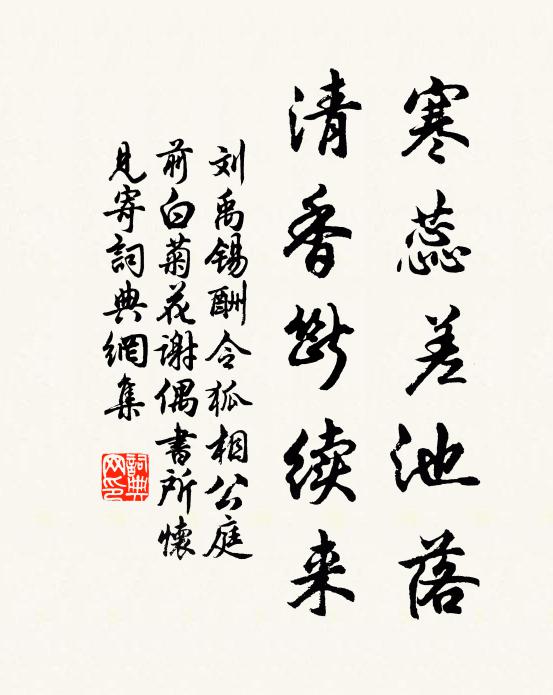 寒蕊差池落
清香断续来
刘禹锡酬令狐相公庭
前白菊花谢偶书所怀
见寄词典網集
詞典网印